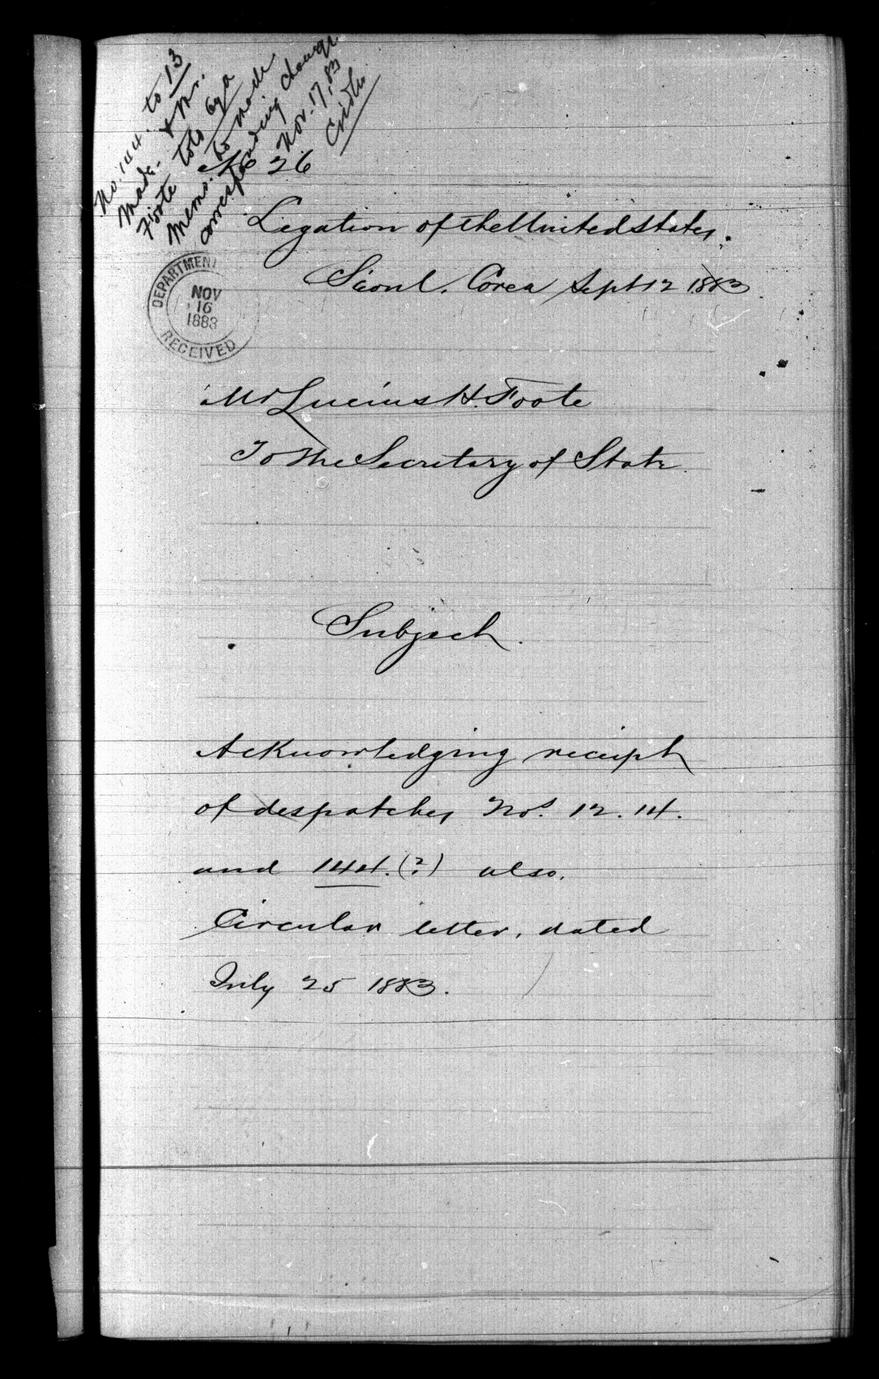 No. 144. to 13
Made. & Mr.
Foote told by a
Memo. to make
corresponding change
Nov. 17, 83
No 26
Legation of the United States.
Séoul. Corea Sept 12 1883
DEPARTMENT
NOV
16
1883
RECEIVED
Mr Lucius H. Foote
To the Secretary of State.
Subject.
Acknowledging receipt
of despatches Nos. 12. 14.
and 144. (?) also.
Circular letter, dated
July 25 1883.